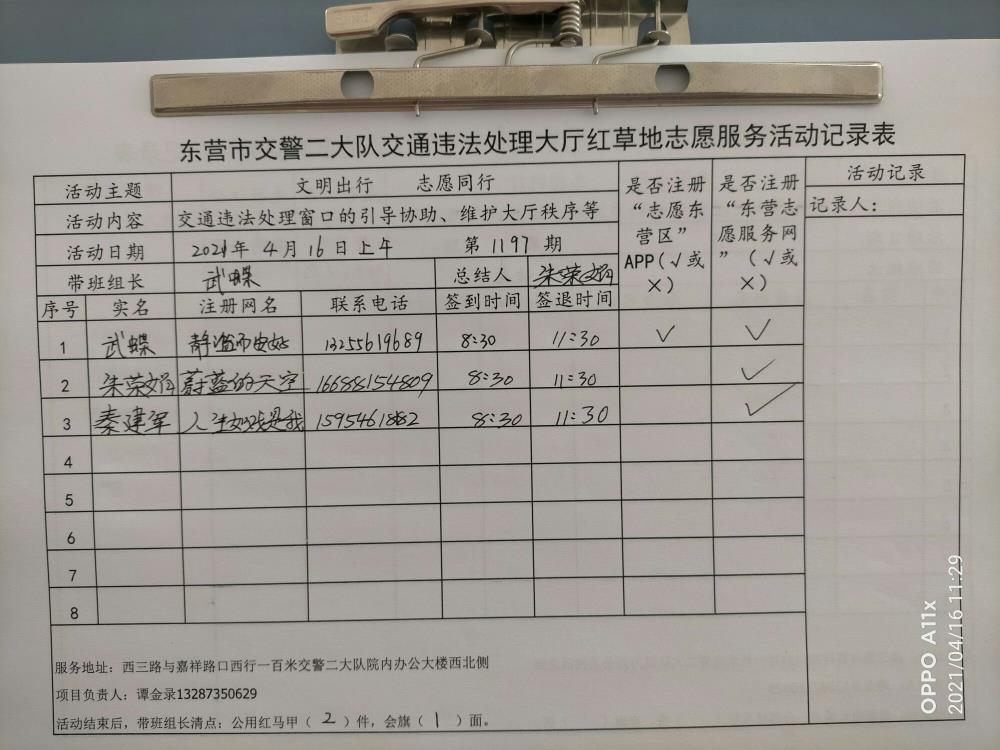 东营市交警二大队交通违法处理大厅红草地志愿服务活动记录表
活动主题 文明出行 志愿同行 是否注册“志愿东营区”APP(√或×) 是否注册“东营志愿服务网”(√或×) 活动记录
活动内容 交通违法处理窗口的引导协助、维护大厅秩序等 记录人:
活动日期 2021年 4月 16日上午 第1197期
带班组长 武蝶 总结人 朱荣娟
序号 实名 注册网名 联系电话 签到时间 签退时间
1 武蝶 13255619689 8:30 11:30 √ √
2 朱荣娟 蔚蓝的天空 16688154809 8:30 11:30 √
3 秦建军 人生如戏是我 1595461882 8:30 11:30 √
4
5
6
7
8
服务地址: 西三路与嘉祥路口西行一百米交警二大队院内办公大楼西北侧
项目负责人: 谭金录13287350629
活动结束后,带班组长清点: 公用红马甲( 2 )件,会旗( 1 )面。
OPPO A11x
2021/04/16 11:29